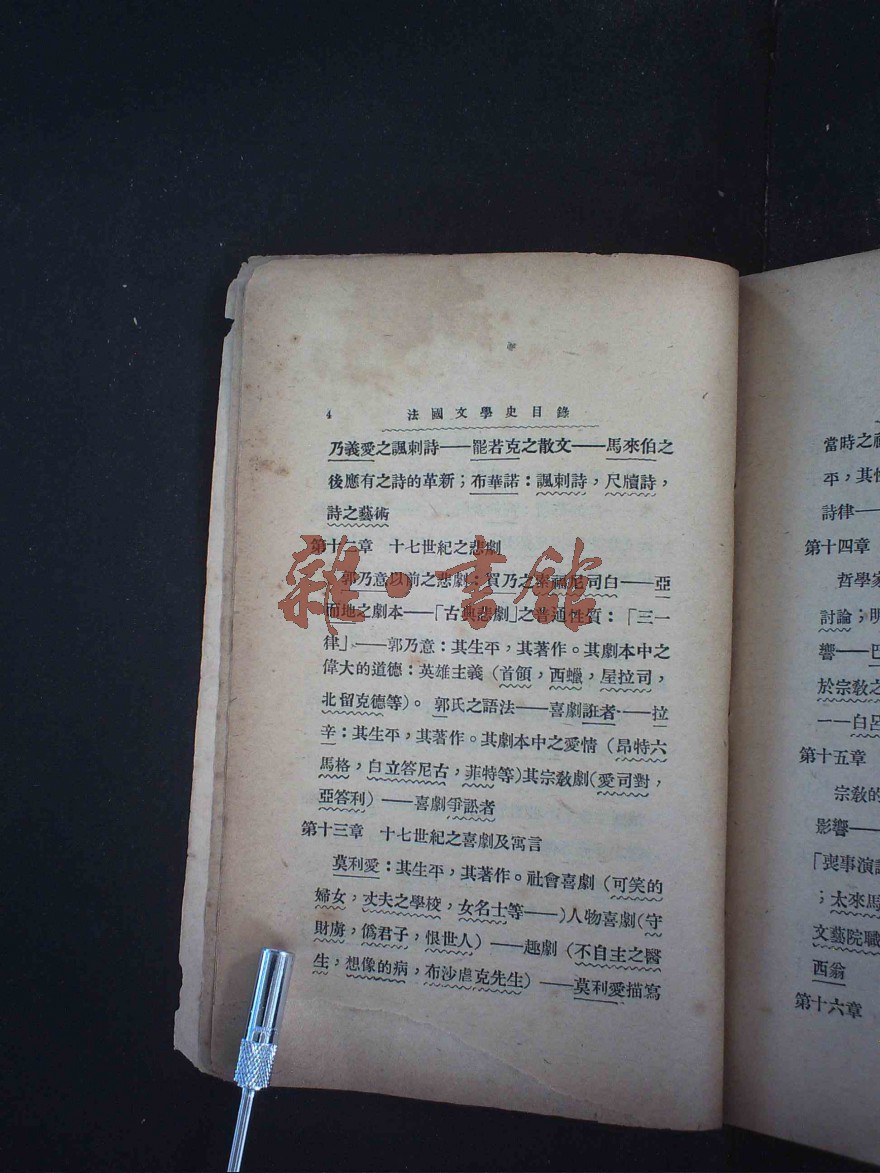 4 法國文學史目錄
乃義愛之諷刺詩——罷若克之散文——馬來伯之
後應有之詩的革新；布華諾：諷刺詩，尺牘詩，
詩之藝術
第十二章 十七世紀之悲劇
郭乃意以前之悲劇；買乃之索福尼司白——亞
而地之劇本——「古典悲劇」之普通性質：「三一
律」——郭乃意：其生平，其著作。其劇本中之
偉大的道德：英雄主義（首領，西蠟，屋拉司，
北留克德等）。郭氏之語法——喜劇誑者——拉
辛：其生平，其著作。其劇本中之愛情（昂特六
馬格，白立答尼古，菲特等）其宗敎劇（愛司對，
亞答利）——喜劇爭訟者
第十三章 十七世紀之喜劇及寓言
莫利愛：其生平，其著作。社會喜劇（可笑的
婦女，丈夫之學校，女名士等——）人物喜劇（守
財虜，僞君子，恨世人）——趣劇（不自主之醫
生，想像的病，布沙虐克先生）——莫利愛描寫
雜·書館
當時之
平，其
詩律——
第十四章
哲學家
討論；明
響——巴
於宗敎之
——白呂
第十五章
宗敎的
影響——
「喪事演
；太來馬
文藝院職
西翁
第十六章